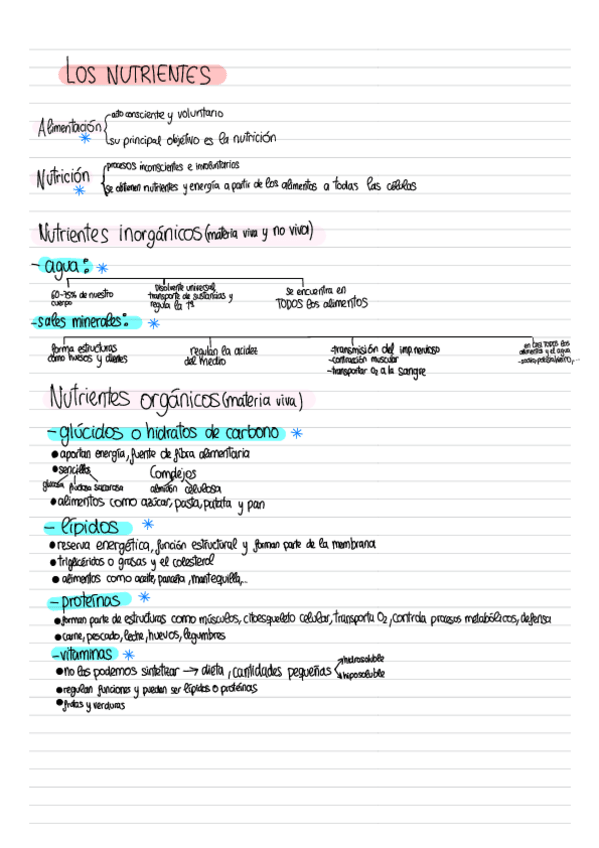 LOS NUTRIENTES
Alimentación
acto consciente y voluntario
su principal objetivo es la nutrición
Nutrición
procesos inconscientes e involuntarios
se obtienen nutrientes y energía a partir de los alimentos a todas las células
Nutrientes inorgánicos (materia viva y no viva)
- agua:
60-75% de nuestro cuerpo
disolvente universal
transporte de sustancias y
regula la Tª
se encuentra en
TODOS los alimentos
- sales minerales:
forma estructuras
como huesos y dientes
regulan la acidez
del medio
-transmisión del imp. nervioso
-contracción muscular
-transportar O2 a la sangre
en casi todos los
alimentos y el agua
Nutrientes orgánicos (materia viva)
- glúcidos o hidratos de carbono
• aportan energía, fuente de fibra alimentaria
• sencillos
Complejos
glucosa fructosa sacarosa
almidón celulosa
• alimentos como azúcar, pasta, patata y pan
- lípidos
• reserva energética, función estructural y forman parte de la membrana
• triglicéridos o grasas y el colesterol
• alimentos como aceite, panceta, mantequilla,...
- proteínas
• forman parte de estructuras como músculos, citoesqueleto celular, transporta O2, controla procesos metabólicos, defensa
• carne, pescado, leche, huevos, legumbres
- vitaminas
• no las podemos sintetizar → dieta, cantidades pequeñas
hidrosoluble
liposoluble
• regulan funciones y pueden ser lípidos o proteínas
• frutas y verduras